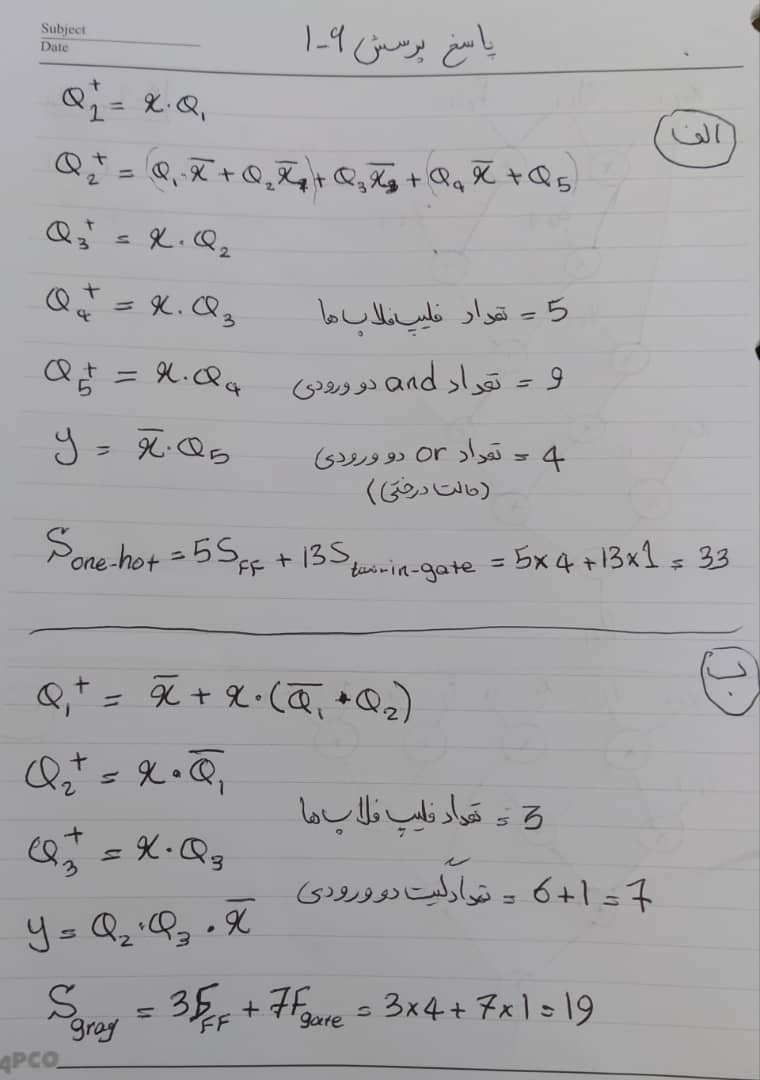 Subject
Date
پاسخ پرسش ۹-۱
الف
Q₁⁺ = x.Q₁
Q₂⁺ = (Q₁.x̅ + Q₂x̅) + Q₃x̅ + (Q₄x̅ + Q₅)
Q₃⁺ = x.Q₂
Q₄⁺ = x.Q₃
تعداد فلیپ فلاپ ها = 5
Q₅⁺ = x.Q₄
تعداد and دو ورودی = 9
y = x̅.Q₅
تعداد or دو ورودی = 4
(حالت درختی)
S one-hot = 5S FF + 13S two-in-gate = 5×4 + 13×1 = 33
ب
Q₁⁺ = x̅ + x.(Q̅₁ + Q₂)
Q₂⁺ = x.Q̅₁
تعداد فلیپ فلاپ ها = 3
Q₃⁺ = x.Q₃
تعداد گیت دو ورودی = 6+1 = 7
y = Q₂.Q₃.x̅
S gray = 3F FF + 7F gate = 3×4 + 7×1 = 19
APCO